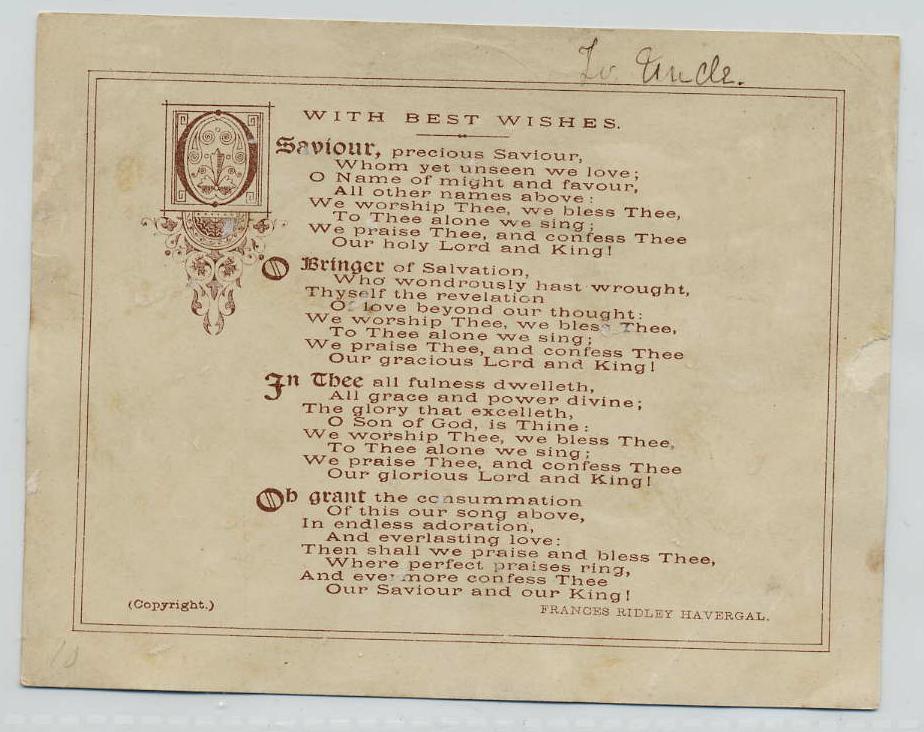 To Uncle.
WITH BEST WISHES.
O Saviour, precious Saviour,
Whom yet unseen we love;
O Name of might and favour,
All other names above:
We worship Thee, we bless Thee,
To Thee alone we sing;
We praise Thee, and confess Thee
Our holy Lord and King!
O Bringer of Salvation,
Who wondrously hast wrought,
Thyself the revelation
Of love beyond our thought:
We worship Thee, we bless Thee,
To Thee alone we sing;
We praise Thee, and confess Thee
Our gracious Lord and King!
In Thee all fulness dwelleth,
All grace and power divine;
The glory that excelleth,
O Son of God, is Thine:
We worship Thee, we bless Thee,
To Thee alone we sing;
We praise Thee, and confess Thee
Our glorious Lord and King!
Oh grant the consummation
Of this our song above,
In endless adoration,
And everlasting love:
Then shall we praise and bless Thee,
Where perfect praises ring,
And evermore confess Thee
Our Saviour and our King!
(Copyright.)
FRANCES RIDLEY HAVERGAL.
10